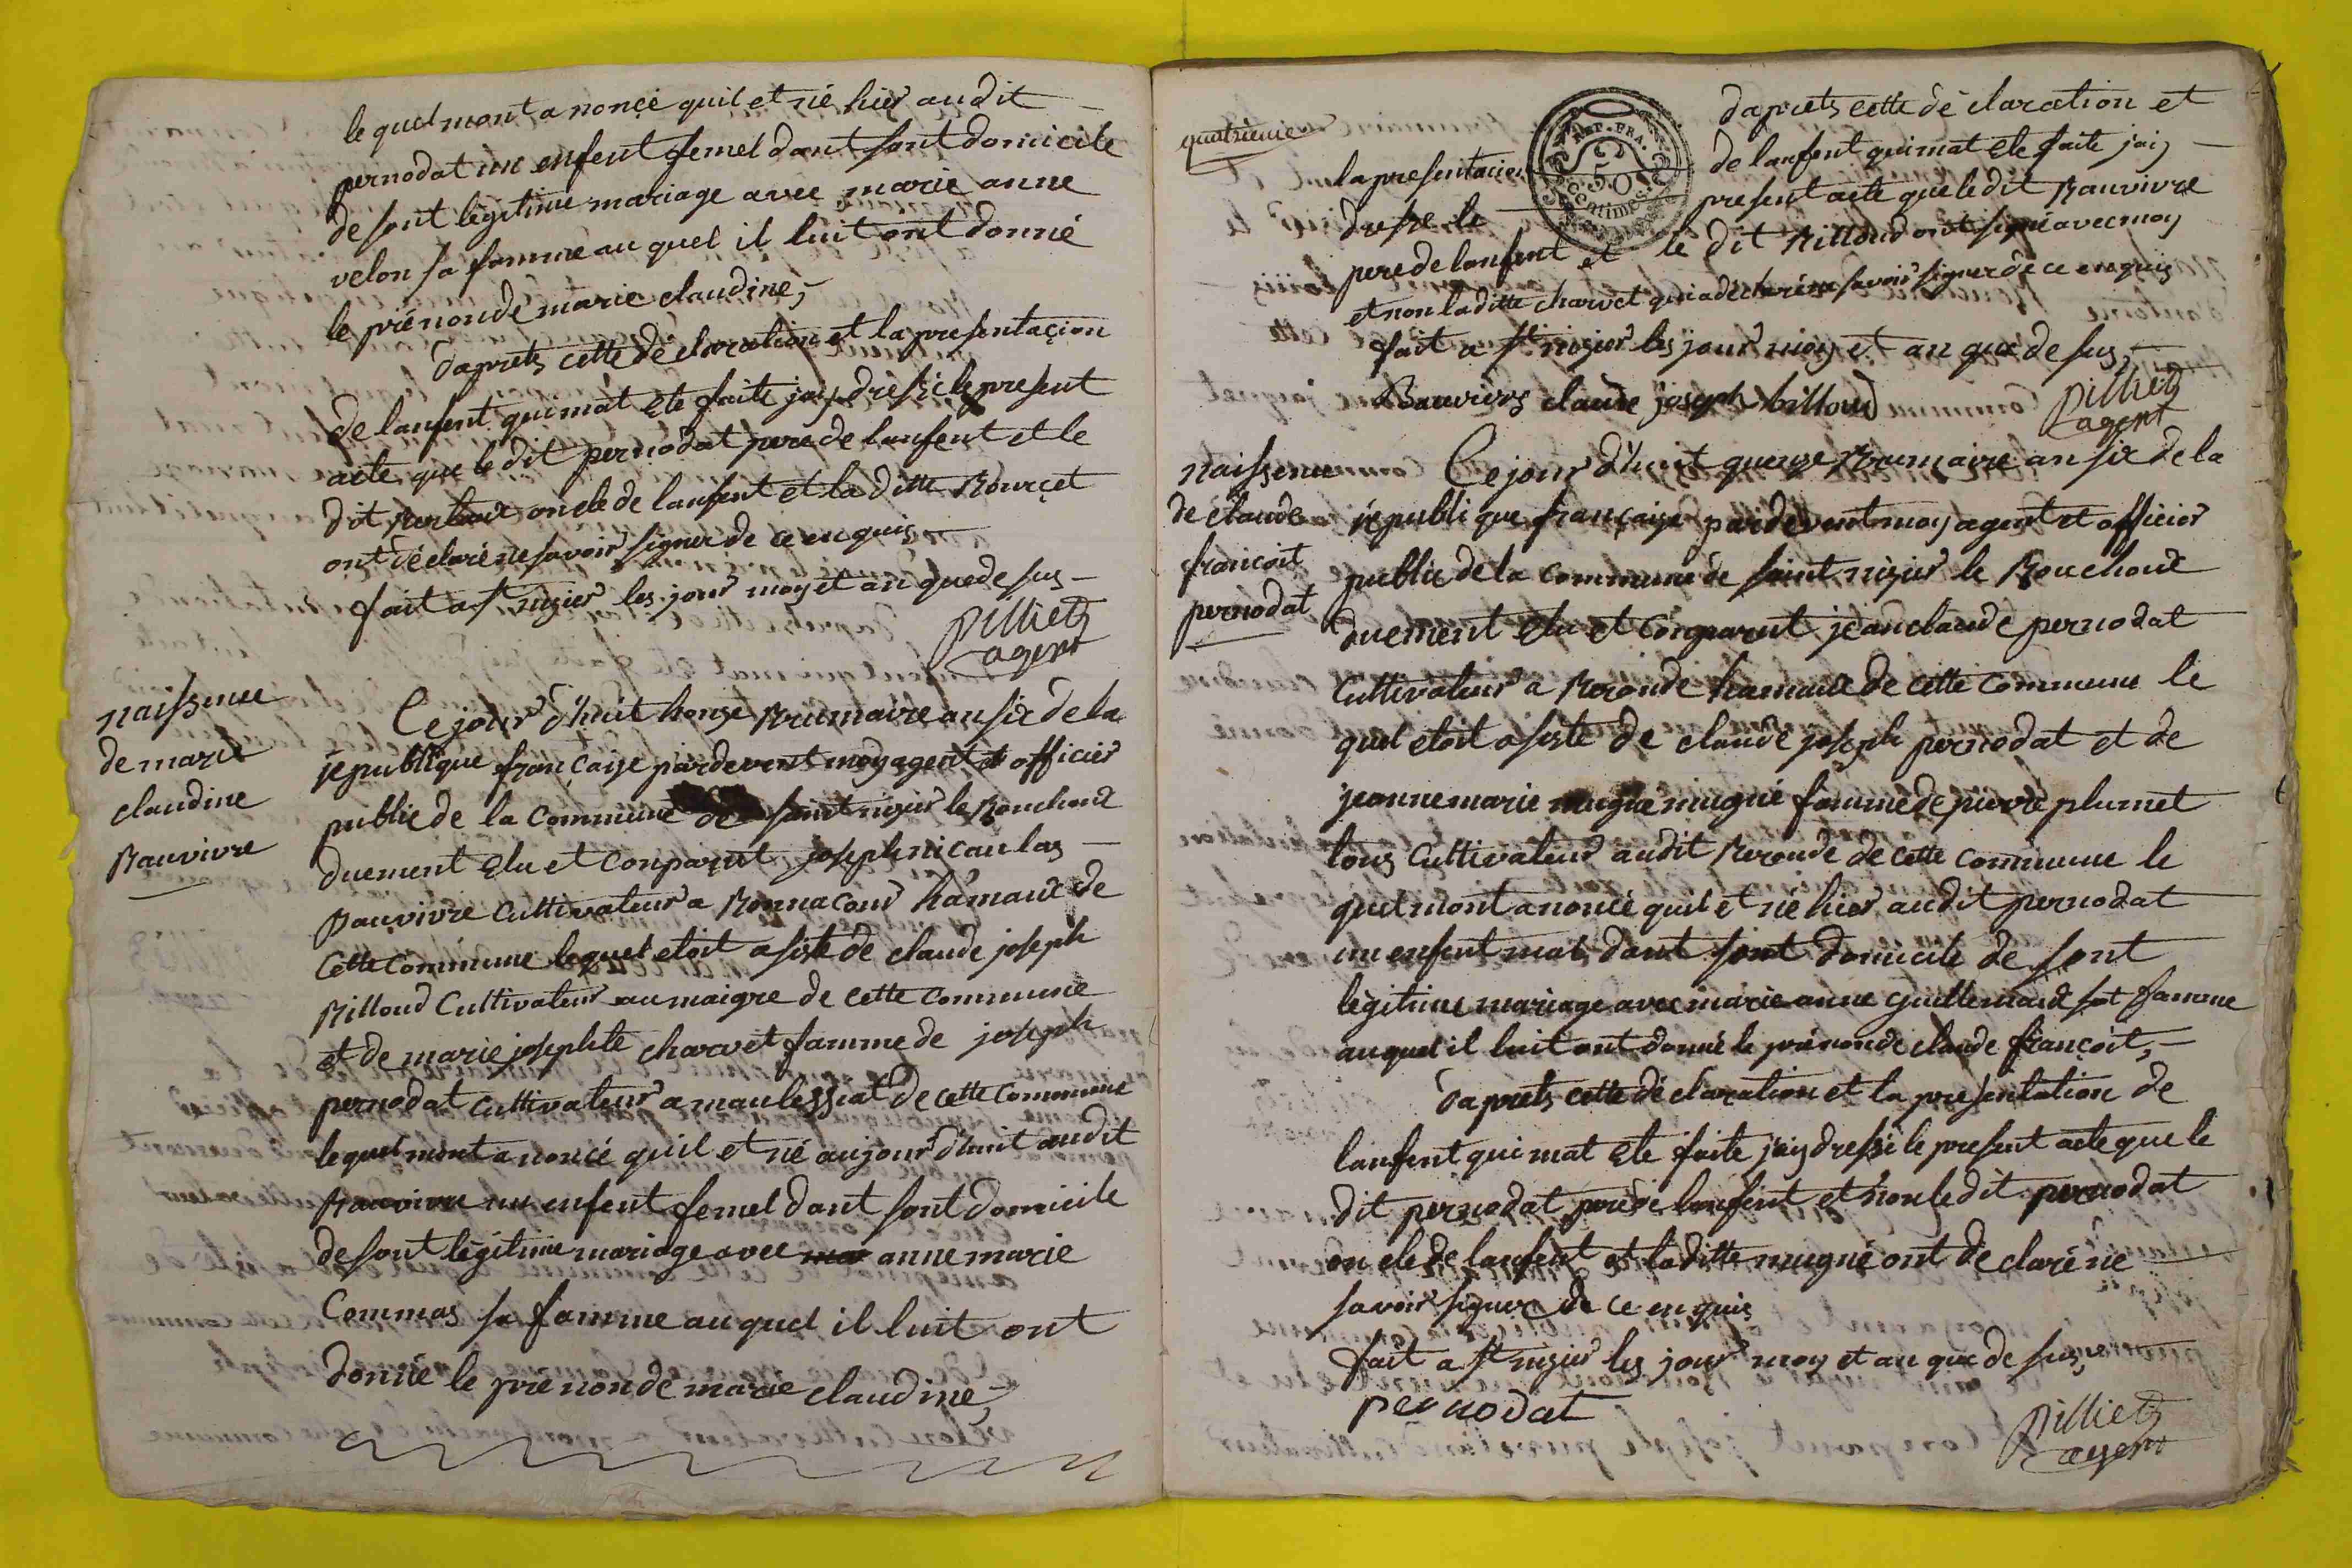 le quel mont a nonçé quil et né hier au dit
pernodat un enfent femel dont sont domicile
de sont légitime mariage avec marie anne
velon sa famme au quel il luit ont donné
le prénon de marie claudine,
daprets cette dé claration et la presentaçion
de lanfent qui mat ete faite jay dressé le present
acte que le dit pernodat pere de lanfent et le
dit oncle de lanfent et la ditte Bourçet
ont dé claré ne savoir signer de ce en quis
fait a st nizier les jour moy et an que de sus
pillietz
agent
naissence
de marie
claudine
Bauvivre
Ce jour d'huit honze Brumaire an six de la
republique françaize pardevent moy agent et officier
public de la Commune de saint nizier le Bouchoux
duement elu et Conparut joseph nicaulas
Bauvivre Cultivateur a Bonnacour hamaux de
Cette Commune lequel etoit asisté de claude joseph
Billoud Cultivateur au maigre de cette Commune
et de marie josephte charvet famme de joseph
pernodat cultivateur a maulessiat de cette Commune
lequel mont a noncé quil et né aujour d'huit audit
Bauvivre un enfent femel dont sont domicile
de sont légitime mariage avec anne marie
Commas sa famme au quel il luit ont
donné le prénon de marie claudine,
quatrieme
REP. FRA.
50
Centimes
daprets cette dé claration et
la presentacion de lanfent qui mat ete faite jay
dresse le present acte que le dit Bauvivre
pere de lanfent et le dit Billoud ont signé avec moy
et non la ditte charvet qui a déclaré ne savoir signer de ce en quis
fait a st nizier les jour moy et an que de sus,
Bauvivre claude joseph billoud
pillietz
agent
naissence
de claude
francoit
pernodat
Ce jour d'huit quenze Brumaire an six de la
republique françaize pardevent moy agent et officier
public de la Commune de saint nizier le Bouchoux
duement elu et Conparut jean claude pernodat
Cultivateur a Beronde hamaux de cette Commune le
quel etoit asisté de claude joseph pernodat et de
jeanne marie mugné famme de pierre plumet
tous Cultivateur audit Beronde de cette Commune le
quel mont anoncé quil et né hier audit pernodat
un enfent mal dont sont domicile de sont
légitime mariage avec marie anne guillemaud sat famme
au quel il luit ont donné le prénon de claude françoit,
daprets cette dé claration et la presentation de
lanfent qui mat ete faite jay dressé le present acte que le
dit pernodat pere de lanfent et non le dit pernodat
on cle de lanfent et la ditte mugné ont dé claré ne
savoir signer de ce en quis
fait a st nizier les jour moy et an que de sus,
pernodat
pillietz
agent